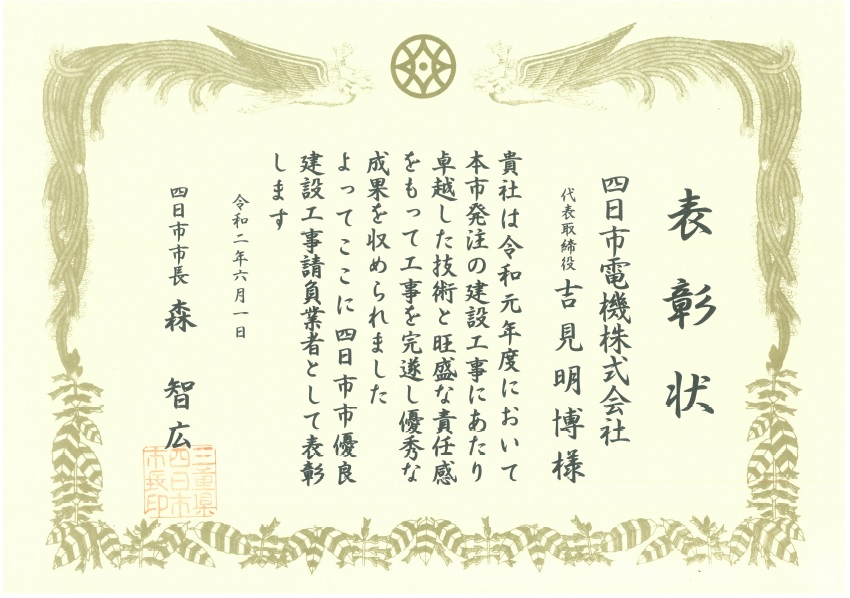 表彰状
四日市電機株式会社
代表取締役 吉見明博様
貴社は令和元年度において
本市発注の建設工事にあたり
卓越した技術と旺盛な責任感
をもって工事を完遂し優秀な
成果を収められました
よってここに四日市市優良
建設工事請負業者として表彰
します
令和二年六月一日
四日市市長 森智広
三重県
四日市
市長印